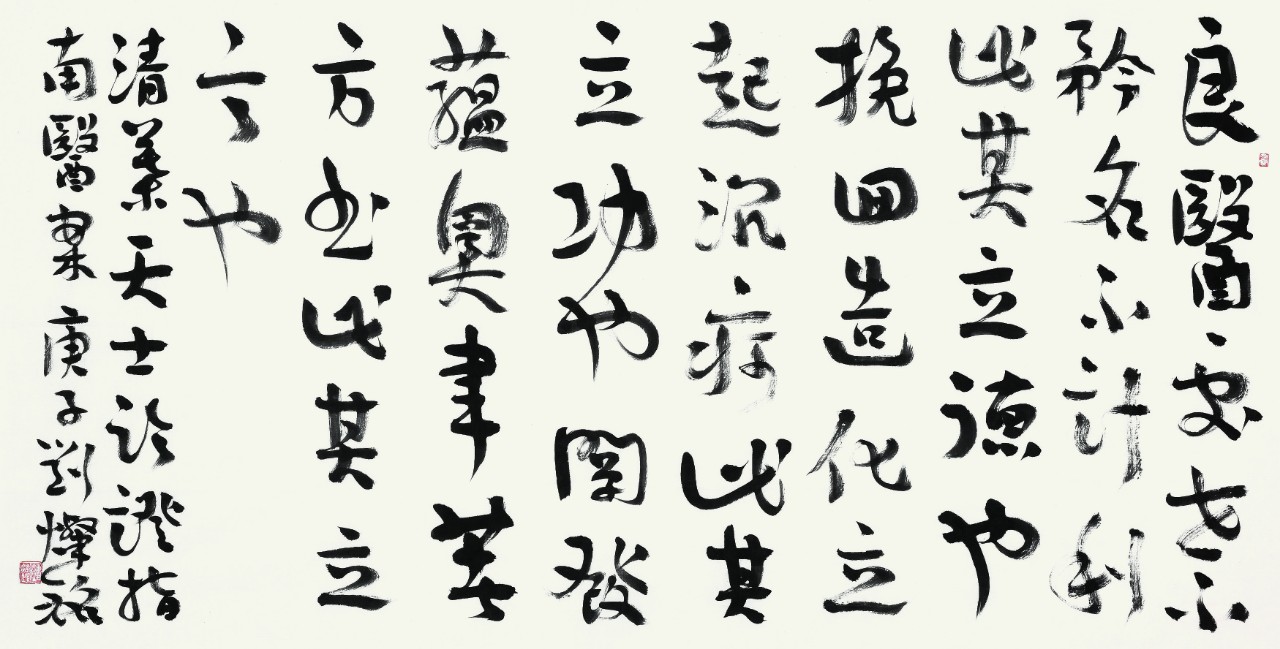 良醫處世不
矜名不計利
此其立德也
挽回造化立
起沉疴此其
立功也闡發
蘊奧聿著
方書此其立
言也
清葉天士臨證指
南醫案庚子劉燦銘